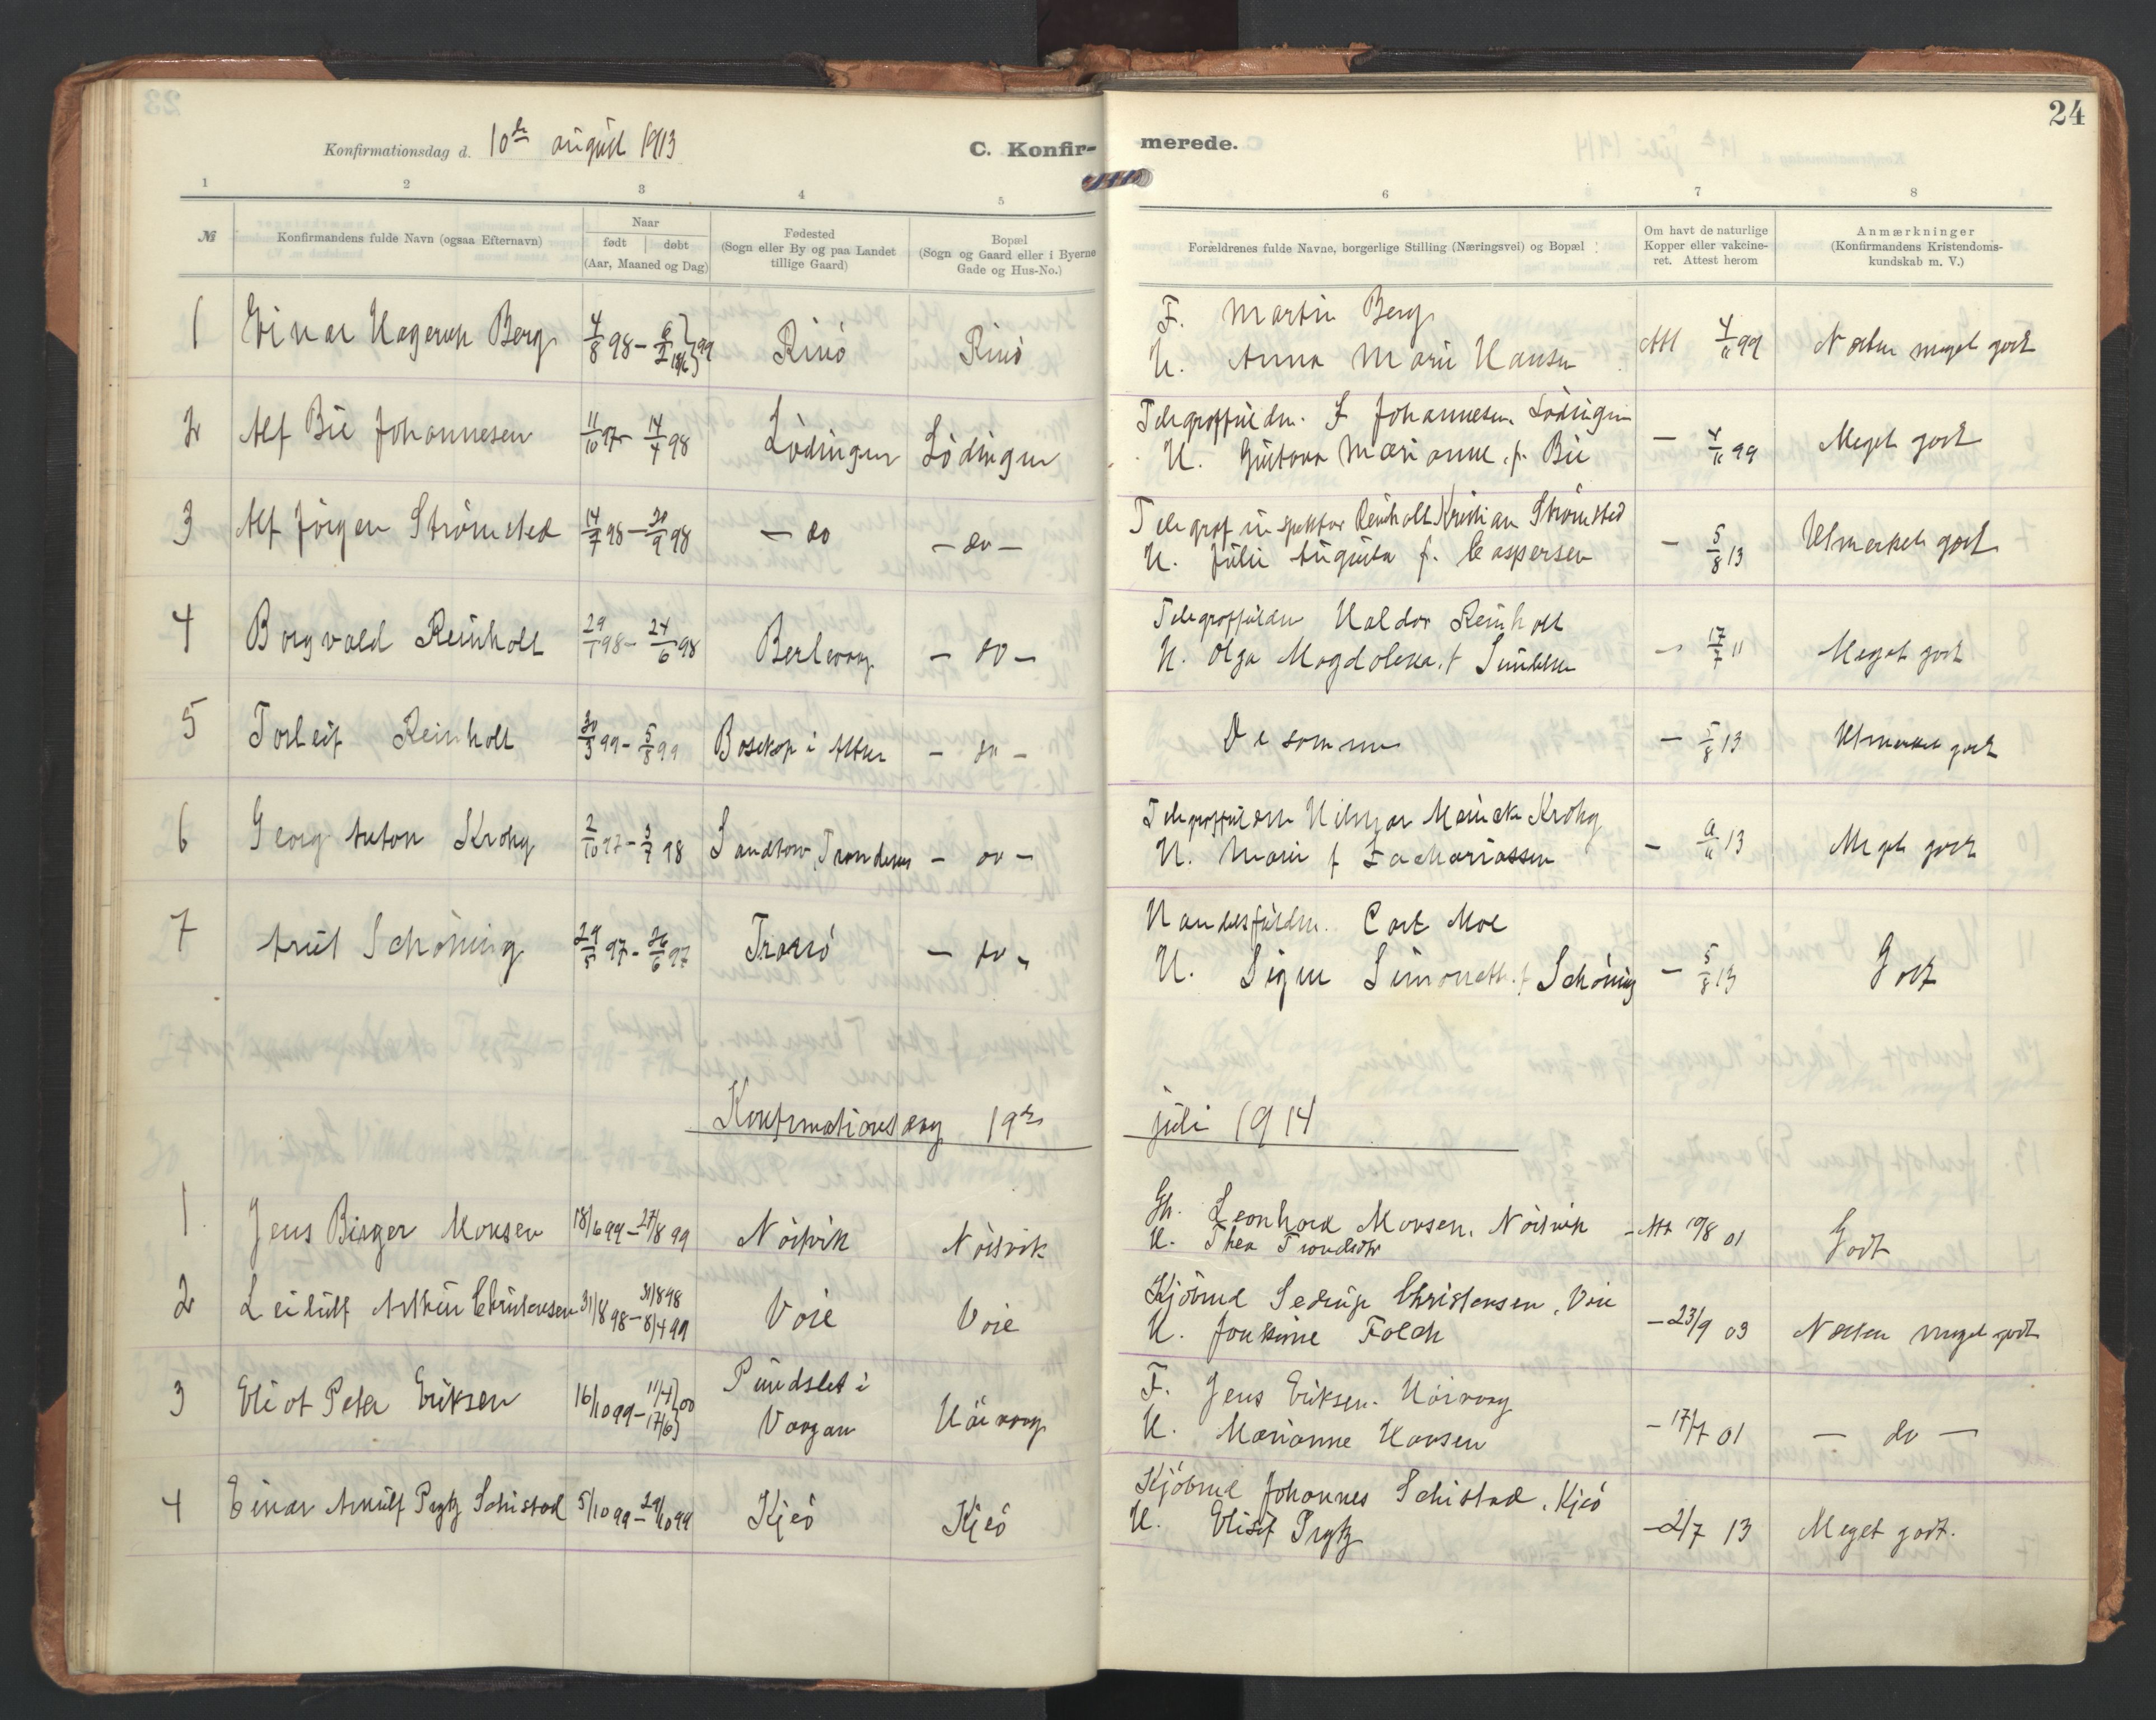 24
Konfirmationsdag d. 10de august 1913
C. Konfirmerede.
1 2 3 4 5 6 7 8
№
Konfirmandens fulde Navn (ogsaa Efternavn)
Naar
født | døbt
(Aar, Maaned og Dag)
Fødested
(Sogn eller By og paa Landet
tillige Gaard)
Bopæl
(Sogn og Gaard eller i Byerne
Gade og Hus-No.)
Forældrenes fulde Navne, borgerlige Stilling (Næringsvei) og Bopæl
Om havt de naturlige
Kopper eller vakcine-
ret. Attest herom
Anmærkninger
(Konfirmandens Kristendoms-
kundskab m. V.)
1 Einar Hagerup Berg 4/8 98 Rinö Rinö
F. Martin Berg
H. Anna Marie Hansen
Att 4/11 99 Næsten meget godt
2 Alf Bie Johannesen 11/10 97 - 14/4 98 Lödingen Lödingen
Telegraffuldm. Johannesen, Lödingen
H. Gustava Marianne f. Bie
- 4/11 99 Meget godt
3 Alf Jörgen Strömsted 14/7 98 - 20/9 98 - do - do -
Telegrafinspektør Reinholt Kristian Strömsted
H. Julie Augusta f. Caspersen
- 5/8 13 Utmerket godt
4 Borgvald Reinholt 29/1 98 - 24/6 98 Berlevaag - do -
Telegraffuldm Haldor Reinholt
H. Olga Magdalena f.
- 17/7 11 Meget godt
5 Torleif Reinholt 30/3 99 - 5/8 99 Bosekop i Alten - do -
De samme
- 5/8 13 Utmerket godt
6 Georg Anton Krohg 2/10 97 - 3/7 98 Sandtorv, Trondenes - do -
Telegraffuldm Hilmar Meincke Krohg
H. Marie f Zachariassen
13 Meget godt
7 Arnt Schöning 29/5 97 - 26/6 97 Tromsö - do -
Handelsfuldm. Carl Moe
H. Signe Simonette f Schöning
- 5/8 13 Godt
Konfirmationsdag 19de juli 1914
1 Jens Birger Monsen 18/6 99 - 27/8 99 Nöisvik Nöisvik
Gb. Leonhard Monsen, Nöisvik
H. Thea Trondsdtr
- Att 19/8 01 Godt
2 Leidulf Arthur Christensen 31/8 98 - 8/4 99 Voie Voie
31/8 98
Kjöbmd Sedrup Christensen, Voie
H. Jonkime Falch
- 23/9 03 Næsten meget godt
3 Eliot Peter Eriksen 16/10 99 - 11/4 } 00
17/6 }
Pundslet i
Vaagan Höivaag
F. Jens Eriksen. Höivaag
H. Marianne Hansen
- 17/7 01 - do -
4 Einar Arnulf Prytz Schistad 5/10 99 - 29/10 99 Kjeö Kjeö
Kjöbmd Johannes Schistad, Kjeö
H. Elisef Prytz
- 2/7 13 Meget godt.